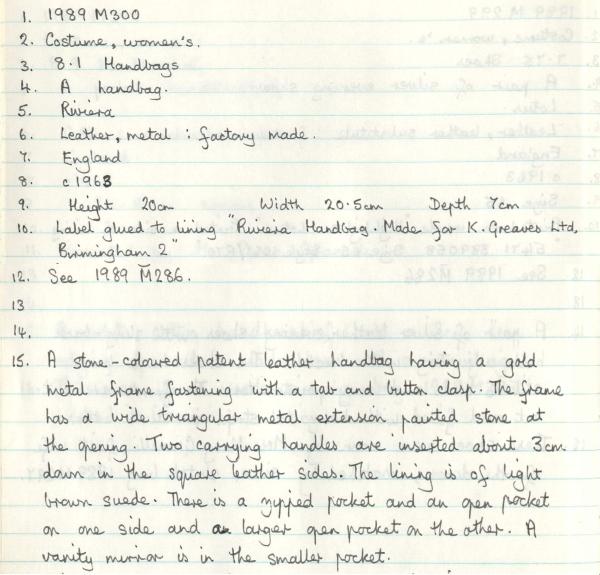 1. 1989 M300
2. Costume, women's.
3. 8.1 Handbags
4. A handbag.
5. Riviera
6. Leather, metal : factory made.
7. England
8. c1963
9. Height 20cm Width 20.5cm Depth 7cm
10. Label glued to lining "Riviera Handbag. Made for K. Greaves Ltd,
Birmingham 2"
12. See 1989 M286.
13
14.
15. A stone-coloured patent leather handbag having a gold
metal frame fastening with a tab and button clasp. The frame
has a wide triangular metal extension painted stone at
the opening. Two carrying handles are inserted about 3cm
down in the square leather sides. The lining is of light
brown suede. There is a zipped pocket and an open pocket
on one side and a larger open pocket on the other. A
vanity mirror is in the smaller pocket.